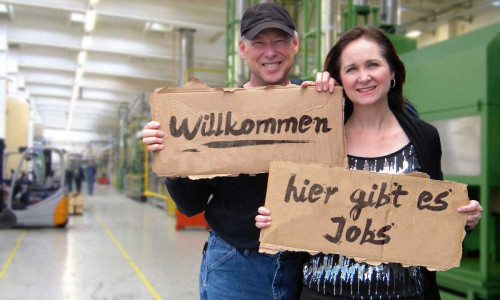 Willkommen
hier gibt es
Jobs